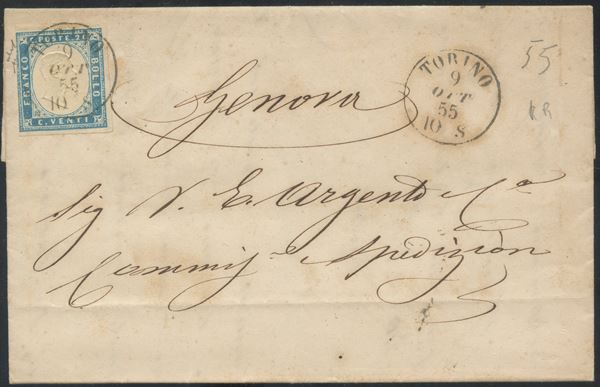 C. POSTE 20
FRANCO
BOLLO
C. VENTI
TORINO
9
OTT
55
10 S
TORINO
9
OTT
55
10 S
55
KR
Genova
Sig V. E. Argento & Cº
Commiss. Spedizion